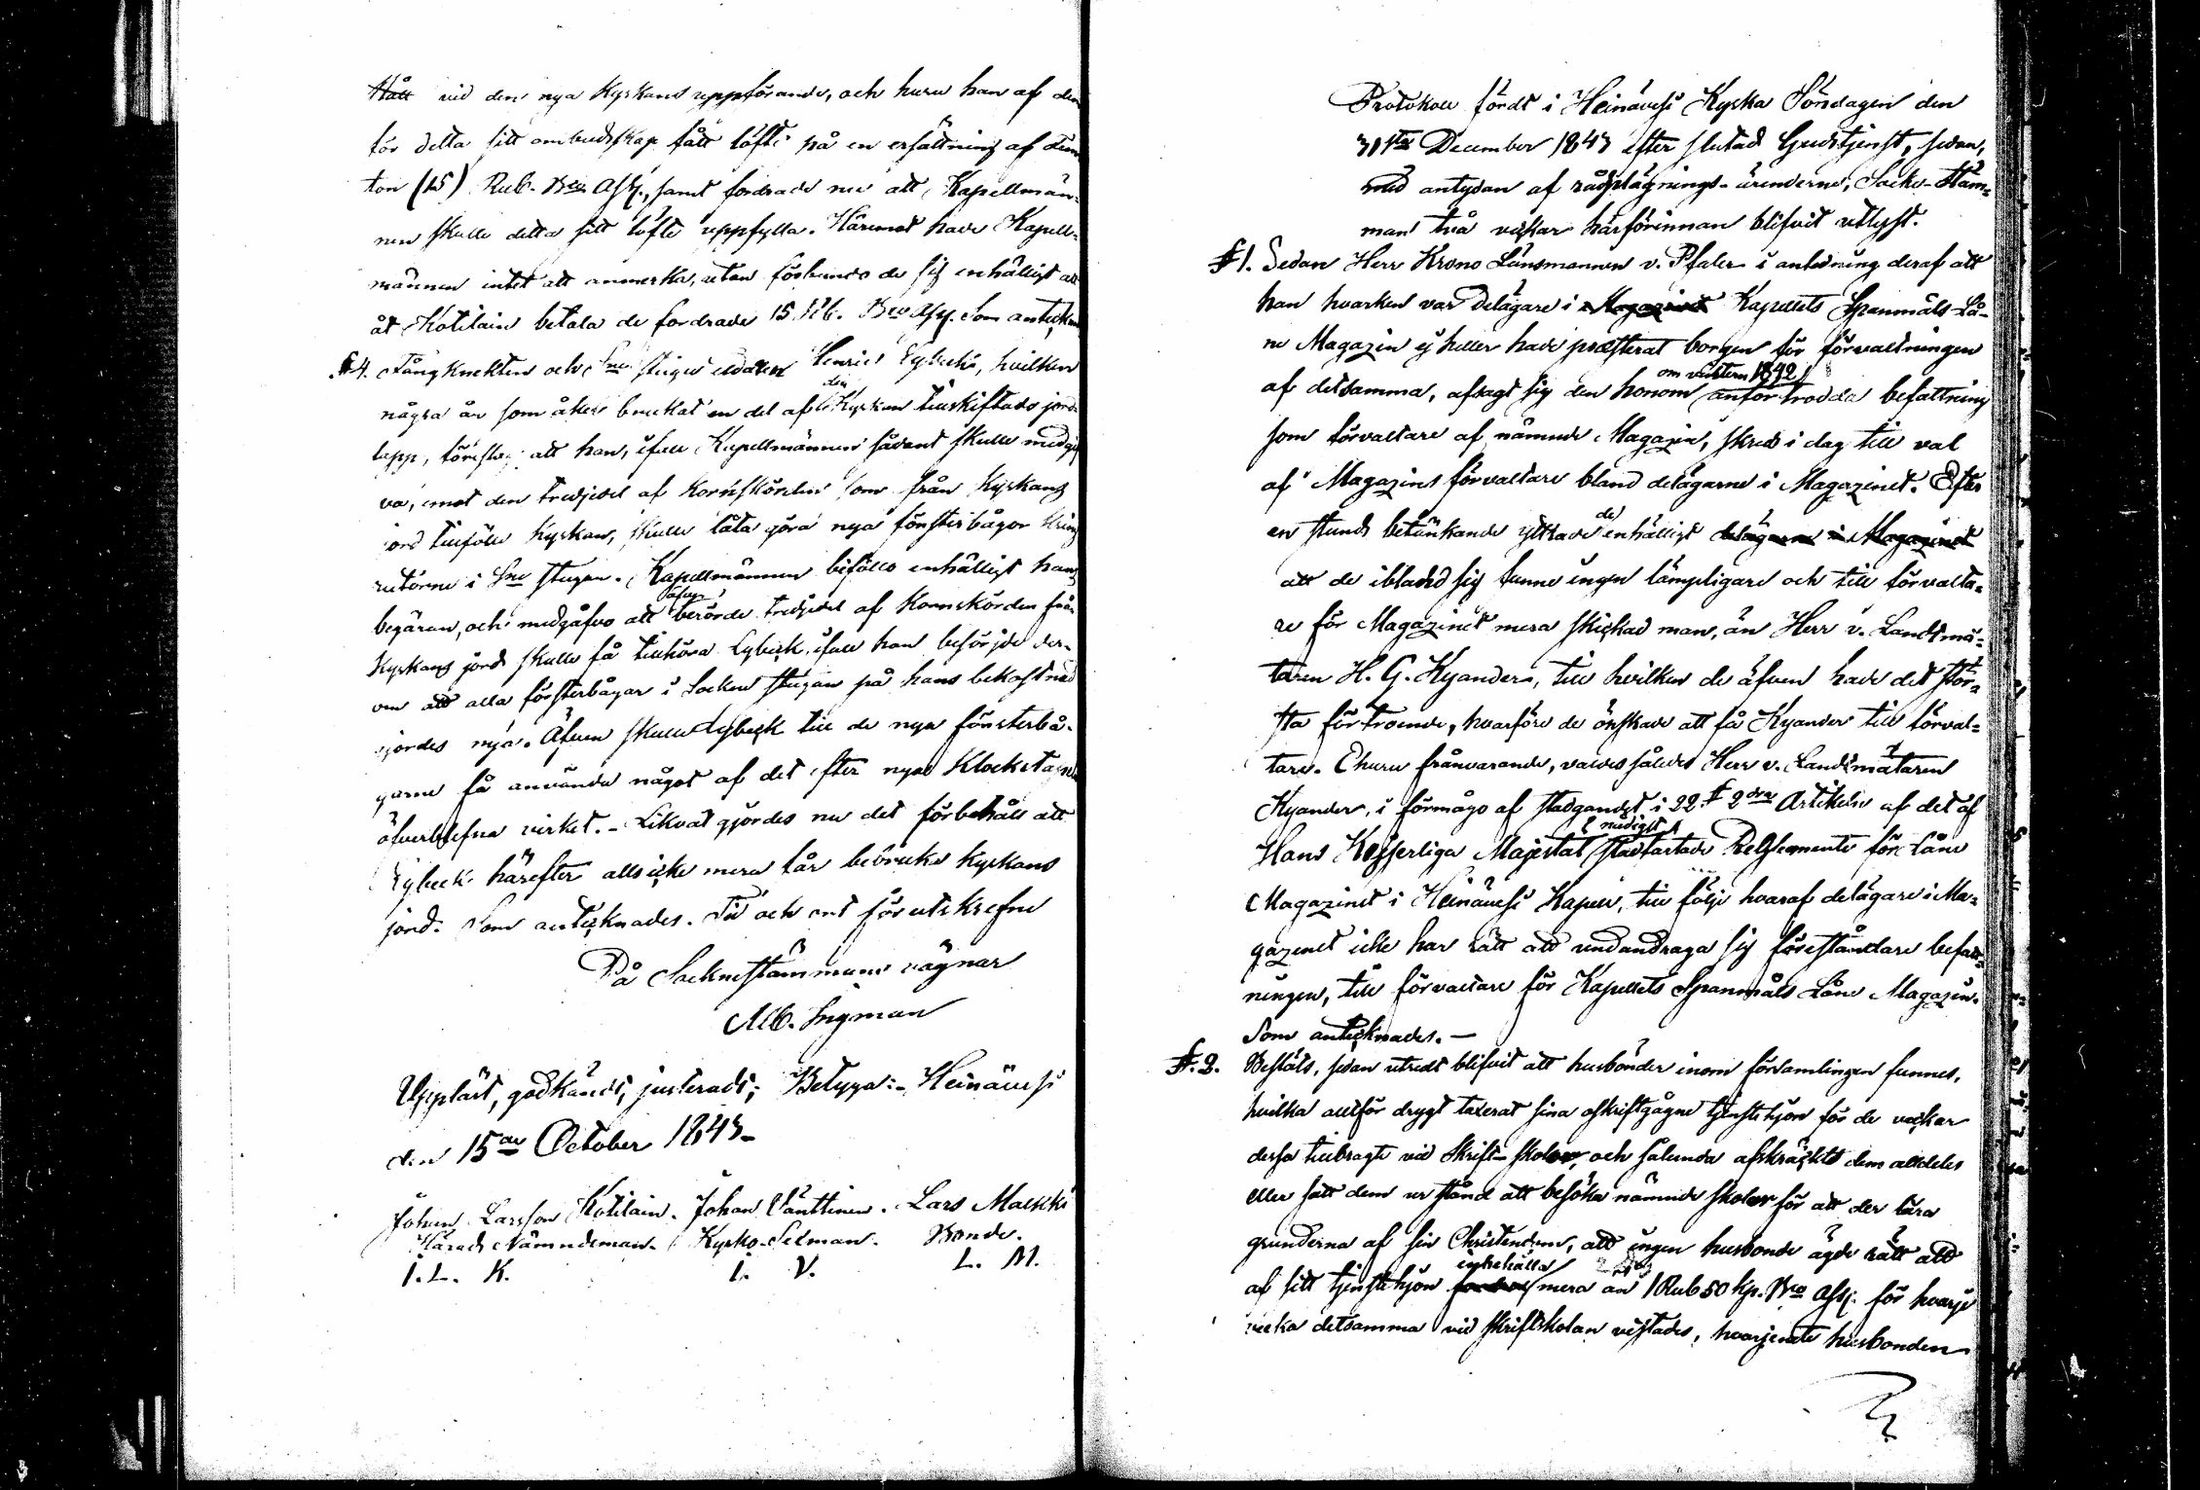 vid den nya Kyrkans uppförande, och huru han af dem
för detta sitt ombudskap fått löfte på en ersättning af Fem-
ton (15) Rub. B:co Ass:, samt fordrade nu att Kapellmän-
nen skulle detta sitt löfte uppfylla. Häremot hade Kapell-
männen intet att anmerka, utan förbundo de sig enhälligt att
åt Kotilain betala de fordrade 15 Rub. B:co Ass. Som anteckn
§ 4. Fångknekten och S:ne stugu Henric Lybeck, hvilken
några år som åker bruckat en del af den Kyrkan tillskiftade jord-
lapp, föreslog att han, ifall Kapellmännen sådant skulle medgif
va, emot den tredjedel af Kornskörden som från Kyrkans
jord tillföll Kyrkan, skulle låta göra nya fönsterbågor kring
rutorne i S:ne stugan. Kapellmännen biföllo enhälligt hans
begäran, och medgåfvo att berörde tredjedel af Kornskörden från
Kyrkans jord skulle få tillhöra Lybeck, ifall han besörjde der-
om att alla fönsterbågar i Socken stugan på hans bekostnad
gjordes nya. Äfven skulle Lybeck till de nya fönsterbå-
garne få använda något af det efter nya Klockstapeln
öfverblefna virket. - Likväl gjordes nu det förbehåll att
Lybeck härefter alls icke mera får bebruka Kyrkans
jord. Som antecknades. Tid och ort förutskrefne
På Socknestämmans vägnar
Alb. Ingman
Uppläst, godkändt, justeradt; Betyga:- Heinävesi
den 15de October 1843-
Johan Larsson Kotilain. Johan Vänttinen. Lars Malkki
Härads Nämndeman. Kyrko-Sexman. Bonde.
I. L. K. I. V. L. M.
Protokoll fördt i Heinävesi Kyrka Söndagen den
31sta December 1843 efter slutad Gudstjenst, sedan,
med antydan af rådplägnings-ärenderne, Socke-Stäm-
man två veckor härförinnan blifvit utlyst.
§ 1. Sedan Herr Krono Länsmannen v. Pfaler i anledning deraf att
han hvarken var delägare i Magazinet Kapellets Spannmåls Lå-
ne Magazin ej heller hade præsterat borgen för förvaltningen
om vintern 1842
af detsamma, afsagt sig den honom anförtrodda befattning
som förvaltare af nämnde Magazin, skreds i dag till val
af Magazins förvaltare bland delägarne i Magazinet. Efter
en stunds betänkande yttrade de enhälligt delägarne i Magazinet
att de ibland sig funne ingen lämpligare och till förvalta-
re för Magazinet mera skickad man, än Herr v. Landtmä-
taren H. G. Kyander, till hvilken de äfven hade det stör-
sta förtroende, hvarföre de önskade att få Kyander till förval-
tare. Ehuru frånvarande, valdes således Herr v. Landtmätaren
Kyander, i förmågo af stadgandet i 22 § 2dra Artikeln af det af
Hans Kejserliga Majestät nådigst stadfästade Reglemente för Låne
Magazinet i Heinävesi Kapell, till följe hvaraf delägare i Ma-
gazinet icke har rätt att undandraga sig föreståndare befatt-
ningen, till förvaltare för Kapellets Spannmåls Låne Magazin.
Som antecknades. -
§. 2. Beslöts, sedan utredt blifvit att husbönder inom församlingen funnes,
hvilka alltför drygt taxerat sina oskriftgågne tjenstehjon för de veckor
dessa tillbragte vid Skrift-skolor, och sålunda afskräckt dem alldeles
eller satt dem ur stånd att besöka nämnde skolor för att der lära
grunderna af sin Christendom, att ingen husbonde ägde rätt att
af sitt tjenstehjon innehålla mera än 1 Rub 50 kp. B:co Ass: för hvarje
vecka detsamma vid skriftskolan vistades, hvarjemte husbonden